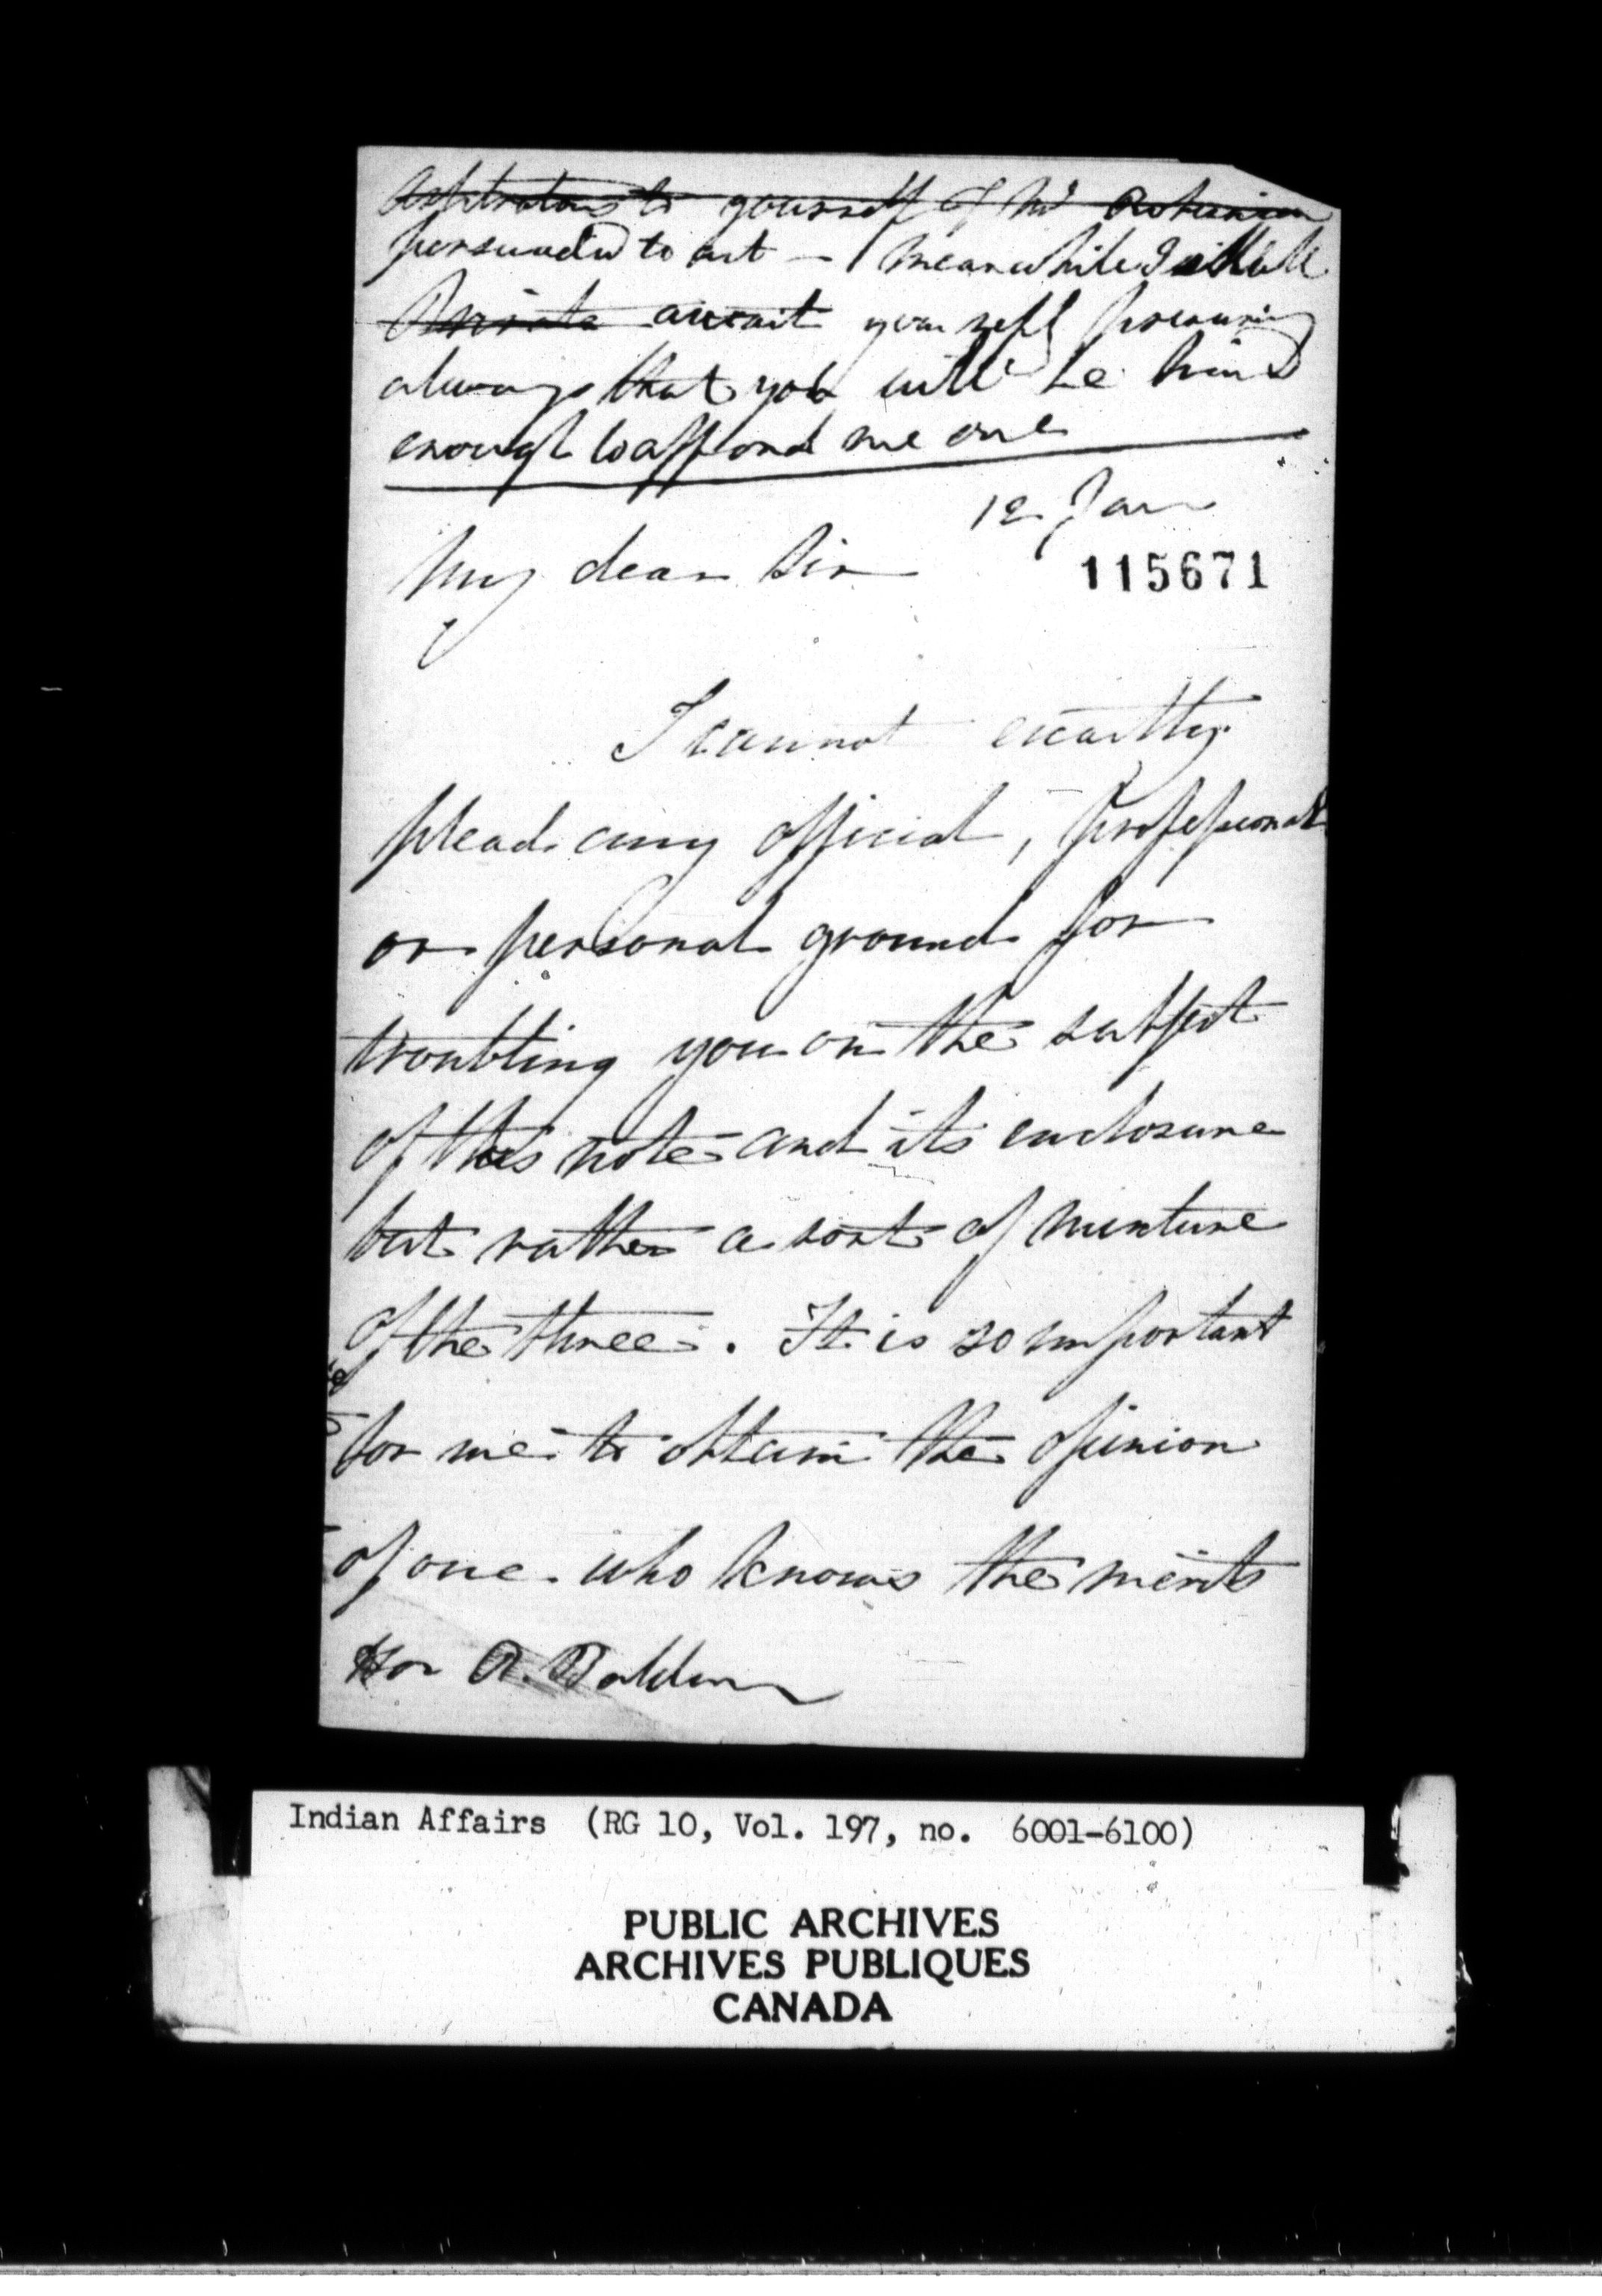 to yourself if Mr Robinson
persuaded to act — Meanwhile I shall
Private await your reply presuming
always that you will be kind
enough to afford me one
12 Jan
My dear Sir
115671
I cannot exactly
plead any official, professional
or personal ground for
troubling you on the subject
of this note and its enclosure
but rather a sort of mixture
of the three. It is so important
for me to obtain the opinion
of one who knows the merits
Hon R. Baldwin
Indian Affairs (RG 10, Vol. 197, no. 6001-6100)
PUBLIC ARCHIVES
ARCHIVES PUBLIQUES
CANADA